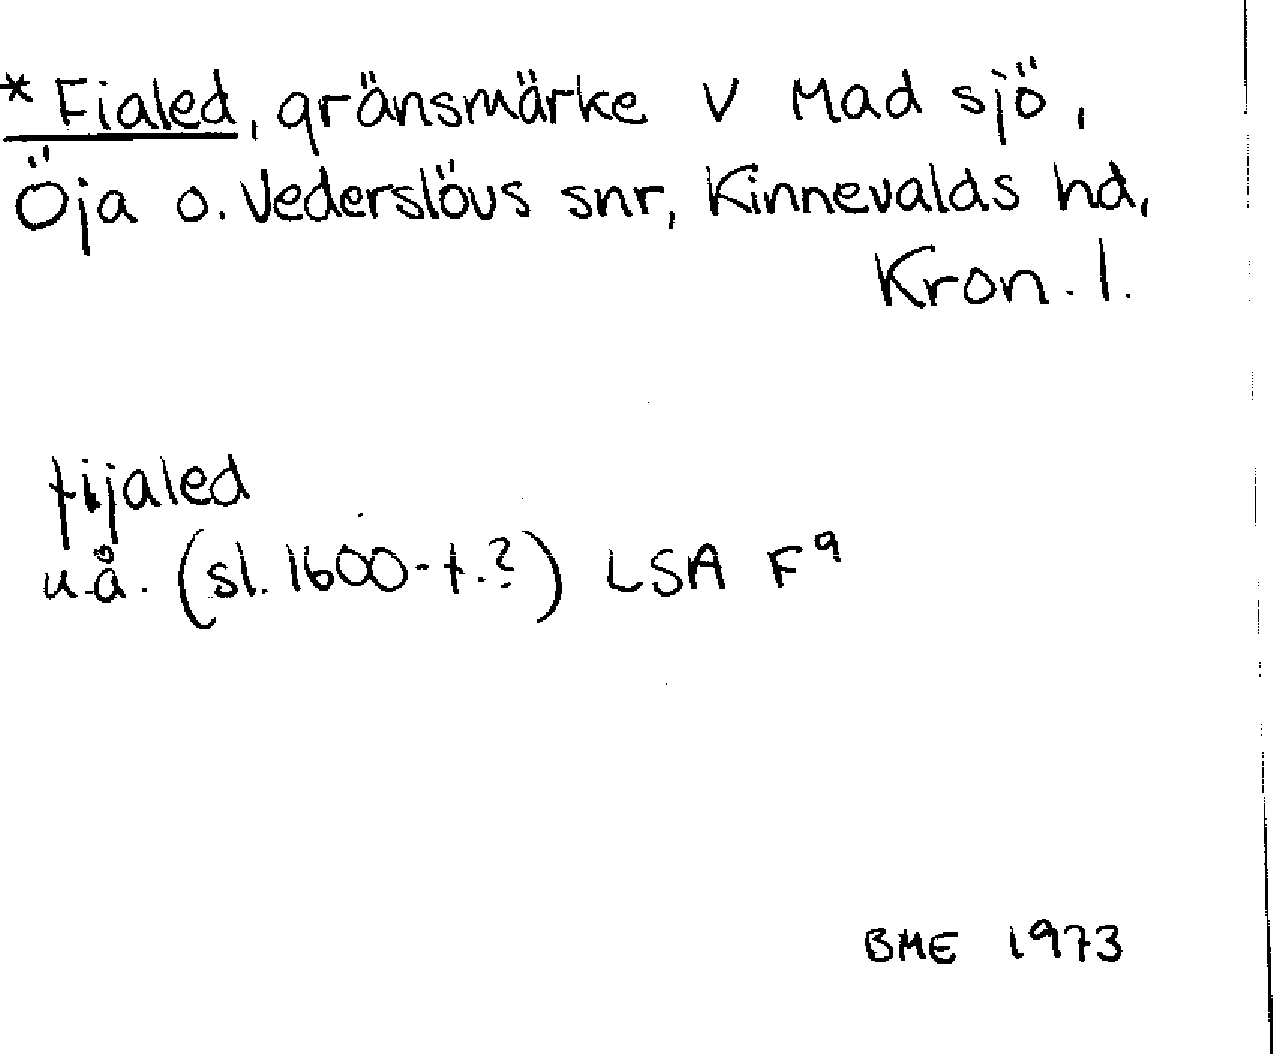 * Fialed, gränsmärke V Mad sjö,
Öja o. Vederslövs snr, Kinnevalds hd,
Kron. l.
fijaled
u.å. (sl. 1600-t.?) LSA F⁹
BME 1973